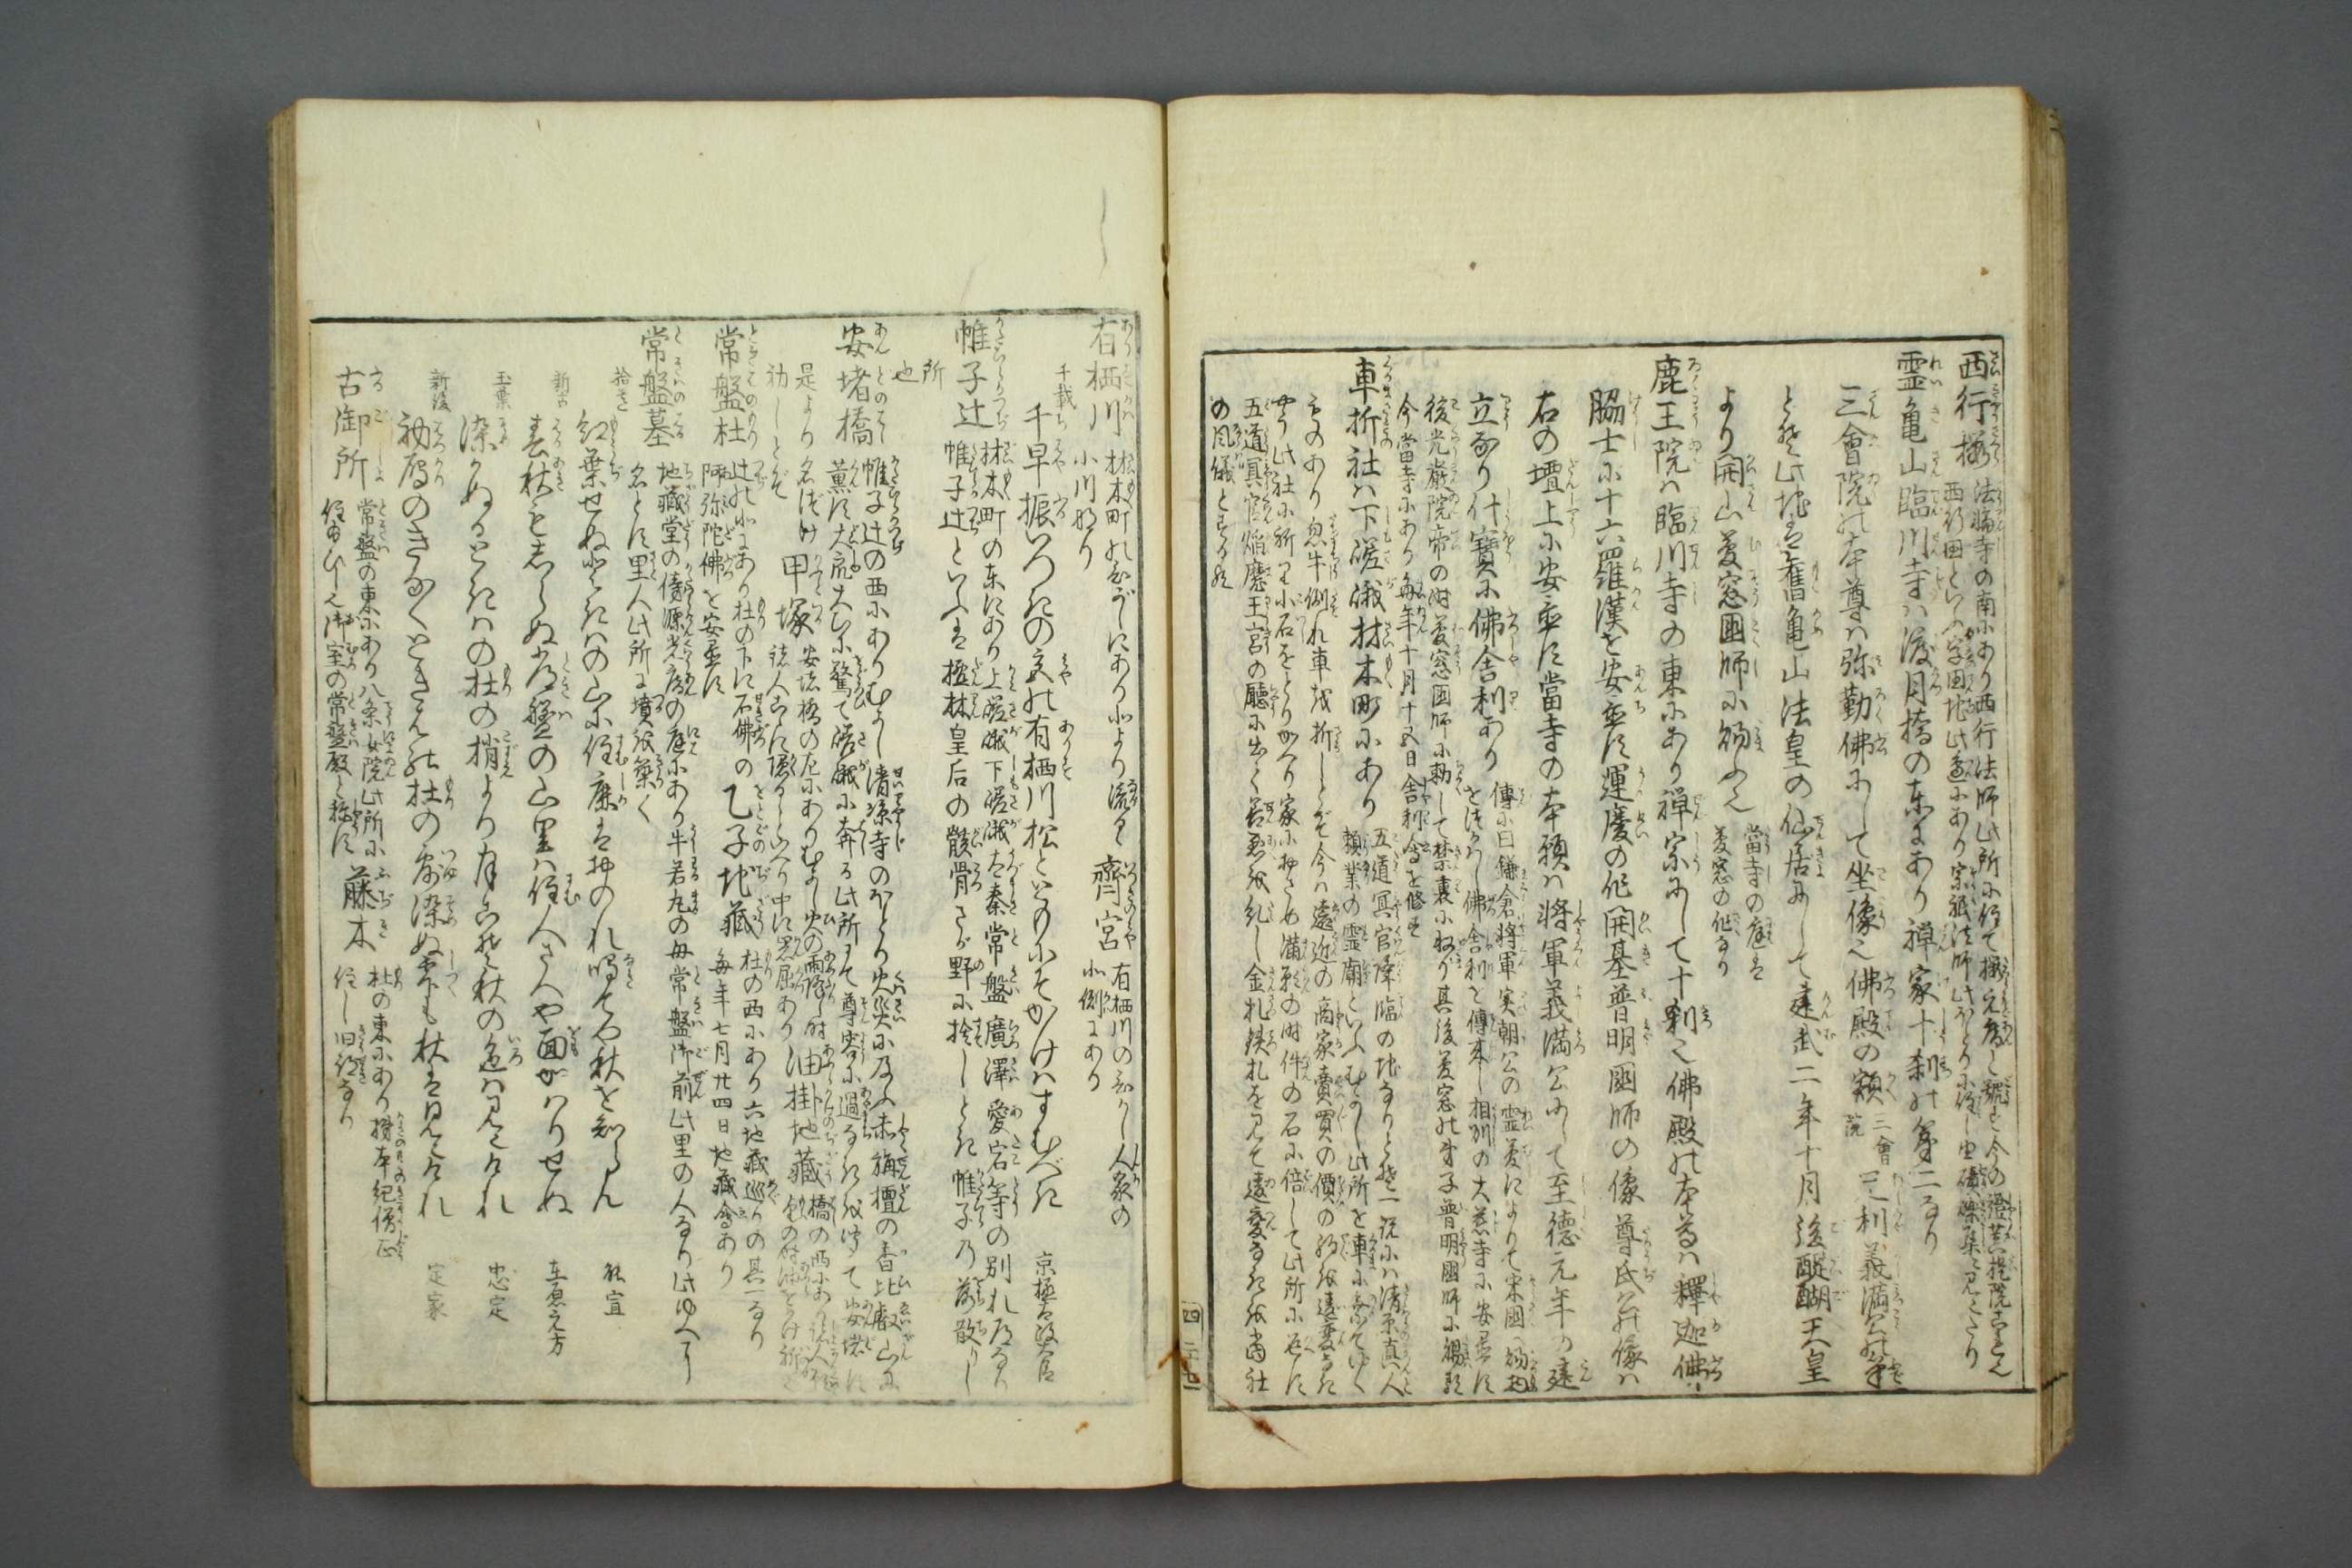 西行桜 法輪寺の南にあり西行法師此所に住て桜元庵と號す今の證菩提院これ也
西行田といふ字田地此邊にあり宗祇法師此ほとりに住し由
霊亀山臨川寺は渡月橋の東にあり禅家十刹の第二なり
三會院の本尊は弥勒佛にして坐像也佛殿の額 三會院 足利義満公の筆
とぞ此地は舊亀山法皇の仙居にして建武二年十月後醍醐天皇
より開山夢窓國師に賜ふ也 當寺の庭は夢窓の作なり
鹿王院は臨川寺の東にあり禅宗にして十刹也佛殿の本尊は釋迦佛
脇士に十六羅漢を安置す運慶の作開基普明國師の像尊氏公の像は
右の壇上に安置す當寺の本願は将軍義満公にして至徳元年の建
立なり什寳に佛舎利あり 傳に曰鎌倉将軍実朝公の霊夢によりて宋國へ
をつかはし佛舎利を傳来し相州の大慈寺に安置す
後光厳院帝の時夢窓國師に勅して禁裏に収り其後夢窓の弟子普明國師に賜る
今當寺にあり毎年十月十五日舎利會を修す
車折社は下嵯峨材木町にあり 五道冥官降臨の地なりとぞ一説には清原真人
頼業の霊廟といふむかし此所を車に乗てゆく
ものあり忽牛倒れ車を折しとぞ今は遠近の商家賣買の價の約を違変なき
やう此社に祈て小石をとりかへり家におさめ満願の時件の石に倍して此所に返す
五道冥官焔魔王宮の廳に出て善悪を糺し金札鉄札を見て違変なきを當社
の風儀とするか
四 二十七
有栖川 材木町の東にあり北より流る小川なり 齋宮 有栖川の東人家の北側にあり
千載 千早振いつきの宮の有栖川松とともにそかけはすむべき 京極太政大臣
帷子辻 材木町の東にあり上嵯峨下嵯峨太秦常盤廣澤愛宕等の別れ道なり
帷子辻といふは檀林皇后の骸骨さが野に捨しとき帷子の落散りし
所也
安堵橋 帷子辻の西にありむかし清凉寺のほとり火災に及ふ赤栴檀の香比叡山に
薫ず大衆大に驚て嵯峨に奔る此所にて尊容に過るなきを聞て安堵す
是より名づけ初しとぞ 甲塚 安堵橋の左にありむかし
常盤杜 辻の北にあり杜の下に石佛の阿弥陀佛を安置す 乙子地蔵 杜の西にあり六地蔵巡りの其一なり
毎年七月廿四日地蔵會あり
油掛地蔵 橋の西にあり
常盤墓 地蔵堂の傍源光庵の庭にあり牛若丸の母常盤御前此里の人なり此ゆへに
名とす里人此所に墳を築く
拾遺 紅葉せぬときはの山に住鹿はおのれ鳴てや秋を知らん 能宣
新古 春秋もしらぬ常盤の山里は住人さへや面がはりせぬ 在原元方
玉葉 染かぬるときはの杜の梢より月こそ秋の色は見えけれ 忠定
新後 初雁のきなくときはの杜の露染ぬ雫も秋は見えけれ 定家
古御所 常盤の東にあり八条女院此所に住給ひし也御室の常盤殿と称す 藤木 杜の東にあり
住し旧跡なり